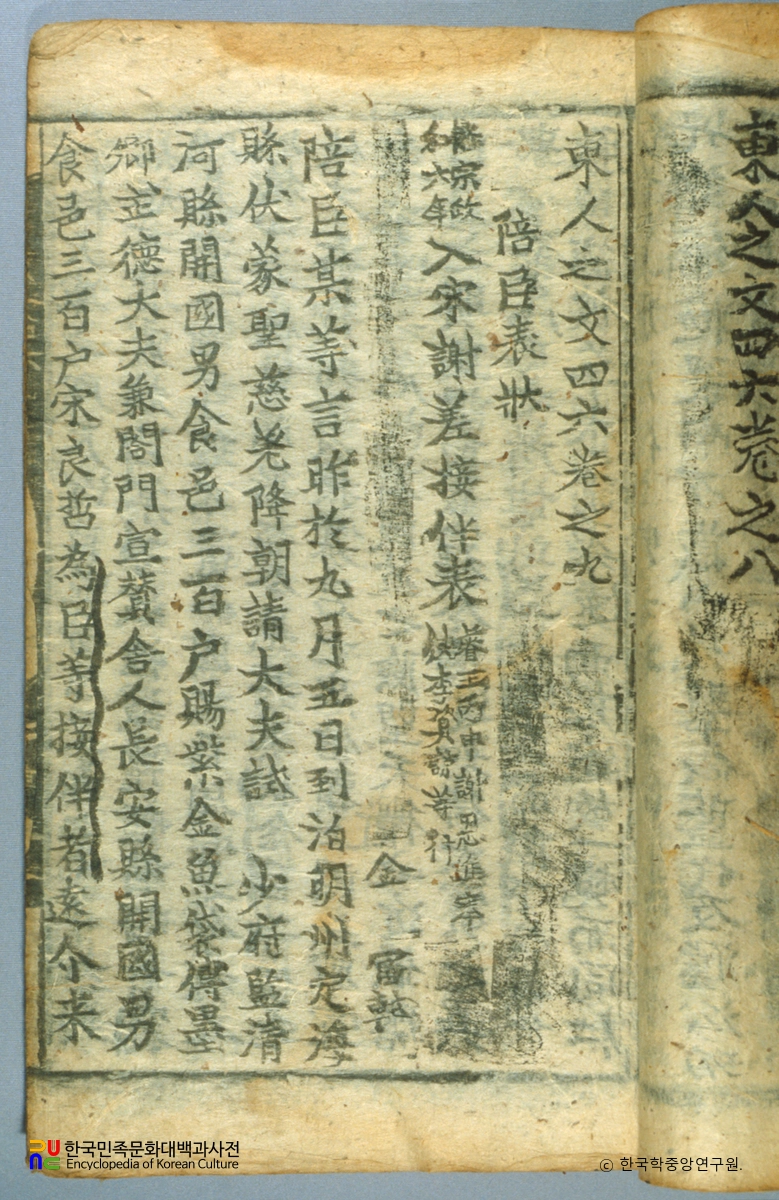 東人之文四六卷之八
東人之文四六卷之九
陪臣表狀
睿宗政和六年入宋謝差接伴表 睿王丙申謝恩進奉使李資諒等行
金富軾
陪臣某等言昨於九月五日到泊明州定海
縣伏蒙聖慈差降朝請大夫試少府監清
河縣開國男食邑三百户賜紫金魚袋傅墨
卿武德大夫兼閤門宣贊舍人長安縣開國男
食邑三百户宋良哲為臣等接伴者遠介来
한국민족문화대백과사전
Encyclopedia of Korean Culture
ⓒ 한국학중앙연구원.